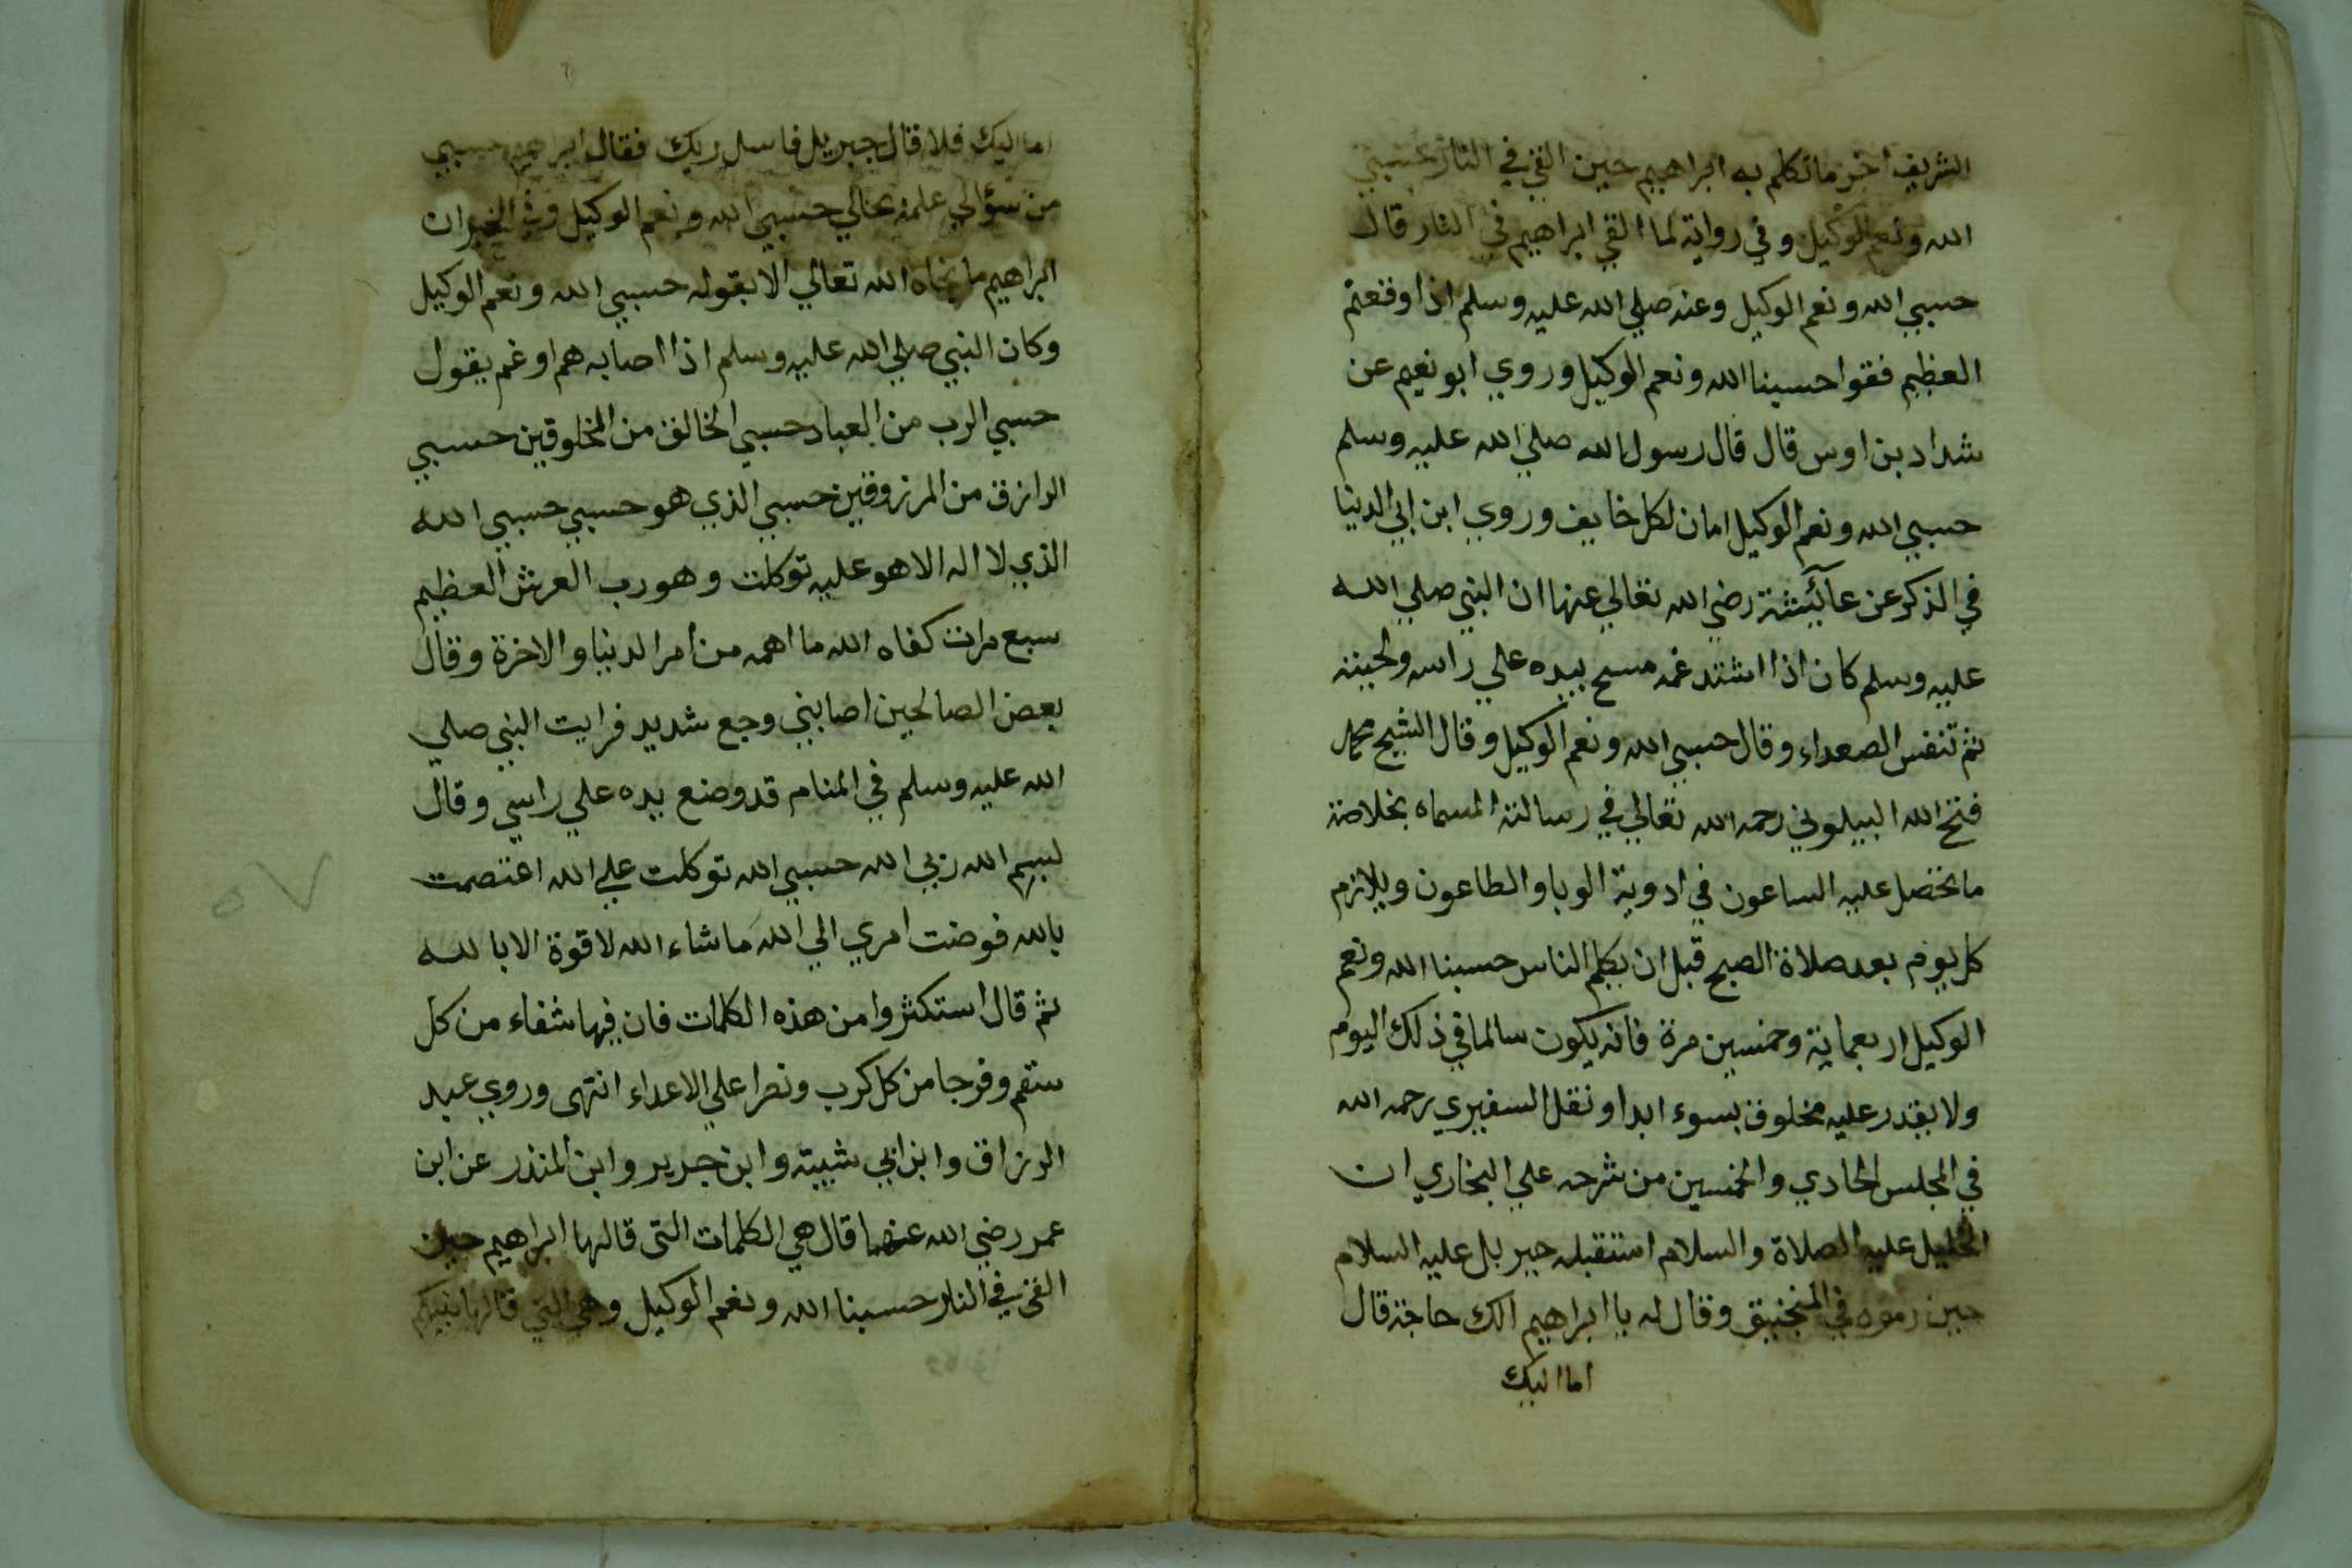 الشريف اخر ما تكلم به ابراهيم حين القي في النار حسبي
الله ونعم الوكيل وفي رواية لما القي ابراهيم في النار قال
حسبي الله ونعم الوكيل وعنه صلي الله عليه وسلم اذا وقعتم
العظيم فقوا حسبنا الله ونعم الوكيل وروي ابو نعيم عن
شداد بن اوس قال قال رسول الله صلي الله عليه وسلم
حسبي الله ونعم الوكيل امان لكل خايف وروي ابن ابي الدنيا
في الذكر عن عائشة رضي الله تعالي عنها ان النبي صلي الله
عليه وسلم كان اذا اشتد غمه مسح بيده علي راسه ولحيته
ثم تنفس الصعداء وقال حسبي الله ونعم الوكيل وقال الشيخ محمد
فتح الله البيلوني رحمه الله تعالي في رسالته المسماه بخلاصة
ما تحصل عليه الساعون في ادوية الوبا والطاعون ويلازم
كل يوم بعد صلاة الصبح قبل ان يكلم الناس حسبنا الله ونعم
الوكيل اربعماية وخمسين مرة فانه يكون سالما في ذلك اليوم
ولا يقدر عليه مخلوق بسوء ابدا ونقل السفيري رحمه الله
في المجلس الحادي والخمسين من شرحه علي البخاري ان
الخليل عليه الصلاة والسلام استقبله جبريل عليه السلام
حين رموه في المنجنيق وقال له يا ابراهيم الك حاجة قال
اما اليك
اما اليك فلا قال جبريل فاسل ربك فقال ابراهيم حسبي
من سؤالي علمه بحالي حسبي الله ونعم الوكيل وفي الخبر ان
ابراهيم ما نجاه الله تعالي الا بقوله حسبي الله ونعم الوكيل
وكان النبي صلي الله عليه وسلم اذا اصابه هم او غم يقول
حسبي الرب من العباد حسبي الخالق من المخلوقين حسبي
الرازق من المرزوقين حسبي الذي هو حسبي حسبي الله
الذي لا اله الا هو عليه توكلت وهو رب العرش العظيم
سبع مرات كفاه الله ما اهمه من امر الدنيا والاخرة وقال
بعض الصالحين اصابني وجع شديد فرايت النبي صلي
الله عليه وسلم في المنام قد وضع يده علي راسي وقال
لبسم الله ربي الله حسبي الله توكلت علي الله اعتصمت
بالله فوضت امري الي الله ما شاء الله لا قوة الا بالله
ثم قال استكثروا من هذه الكلمات فان فيها شفاء من كل
سقم وفرجا من كل كرب ونصرا علي الاعداء انتهى وروي عبد
الرزاق وابن ابي شيبة وابن جرير وابن المنذر عن ابن
عمر رضي الله عنهما قال هي الكلمات التى قالها ابراهيم حين
القي في النار حسبنا الله ونعم الوكيل وهي التي قالها نبيكم
٥٧